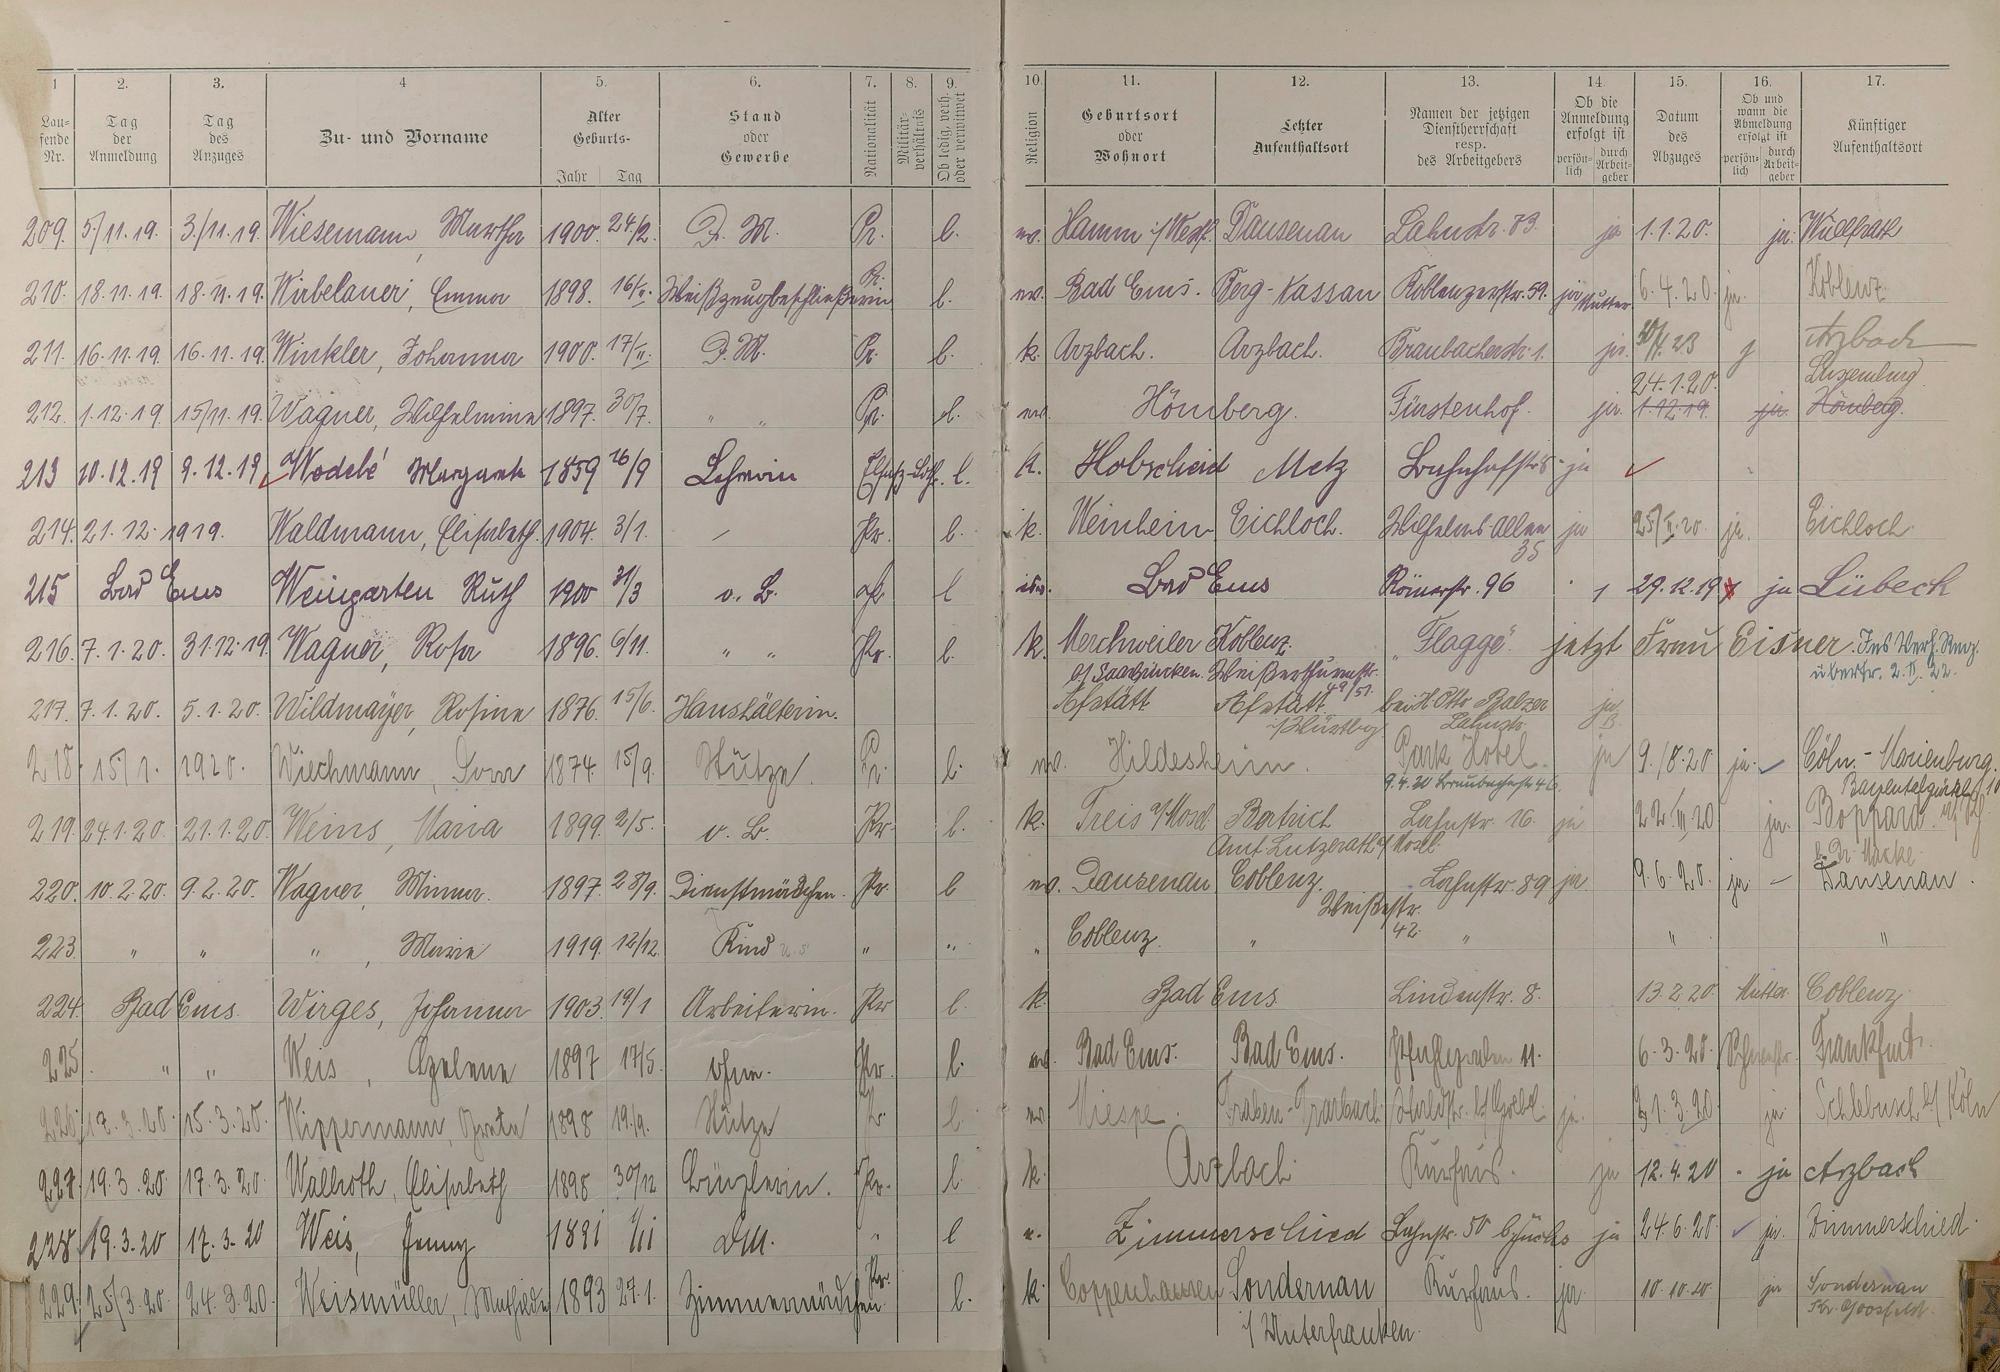 1 2. 3. 4 5. 6. 7. 8. 9. 10. 11. 12. 13. 14 15. 16. 17.
Laufende Nr. Tag der Anmeldung Tag des Anzuges Zu- und Vorname Alter Geburts- Jahr Tag Stand oder Gewerbe Nationalität Militärverhältnis Ob ledig, verh. oder verwitwet Religion Geburtsort oder Wohnort Letzter Aufenthaltsort Namen der jetzigen Dienstherrschaft resp. des Arbeitgebers Ob die Anmeldung erfolgt ist persönlich durch Arbeitgeber Datum des Abzuges Ob und wann die Abmeldung erfolgt ist persönlich durch Arbeitgeber Künftiger Aufenthaltsort
209. 5./11.19. 3./11.19. Wiesemann, Martha 1900. 24/2. D. M. Pr. l. ev. Hamm i/Westf. Dausenau Lahnstr. 83. ja 1.1.20. ja
210. 18.11.19. 18.11.19. Wirbelauer, Emma 1898. Weißzeugbeschließerin Pr. l. ev. Bad Ems. Berg-Nassau Koblenzerstr. 59. ja Mutter 6.4.20. ja. Koblenz
211. 16.11.19. 16.11.19. Winkler, Johanna 1900. 17/II. D. M. Pr. l. k. Arzbach. Arzbach. Braubacherstr. 1. ja. Arzbach
24.1.20. Luxemburg
212. 1.12.19 15/11.19. Wagner, Wilhelmine 1897. 30/7. " " Pr. l. ev. Hömberg. Fürstenhof. ja. 1.12.19. ja. Hömberg.
213 10.12.19 9.12.19 Wodebé Margarete 1859 16/9 Lehrerin Elsaß-Loth. l. k. Hobscheid Metz Bahnhofstr. 8 ja
214. 21.12.1919. Waldmann, Elisabeth. 1904. 3/1. Pr. l. k. Weinheim Eichloch. Wilhelms-Allee 35 ja 25/II.20. ja. Eichloch
215 Bad Ems Weingarten Ruth 1900 31/3 o. B. Pr l isr. Bad Ems Römerstr. 96 29.12.19 ja Lübeck
216. 7.1.20. 31.12.19. Wagner, Rosa 1896. 6/11. " " Pr. l. k. Merchweiler Koblenz. "Flagge" jetzt Frau Eisner. Ins Verh. Reg.
b/Saarbrücken. Weißerthurmstr. 49/51. übertr. 2.II.22.
217. 7.1.20. 5.1.20. Wildmayer, Rosine 1876. 15/6. Haushälterin. Afstätt Afstätt bei H. Otto Balzer ja
i/Württbg Lahnstr.
218. 15/1. 1920. Wiechmann, Dora 1874. 15/9. Stütze. Pr. l. ev. Hildesheim. Park Hotel. ja 9./8.20 ja. Cöln-Marienburg.
9.4.20 Braubacherstr. 46.
219. 24.1.20. 21.1.20. Weins, Maria 1899. 2/5. o. B. Pr. l. k. Treis a/Mosel Bertrich Lahnstr. 16. ja 22.III.20 ja. Boppard a/Rh.
Amt Lutzerath a/Mosel.
220. 10.2.20. 9.2.20. Wagner, Minna. 1897. 28/9. Dienstmädchen. Pr. l ev. Dausenau Coblenz. Lahnstr. 89 ja. 9.6.20. ja — Dausenau.
42.
223. " " " , Marie 1919. 12/12. Kind " " " Coblenz. " " " "
224. Bad Ems. Wirges, Johanna 1903. 19/1 Arbeiterin. Pr l. k Bad Ems Lindenstr. 8. 13.2.20. Mutter. Coblenz.
225. " " Weis, 1897 17/5. ohne. Pr. l. ev. Bad Ems. Bad Ems. 11. 6.3.20. Frankfurt.
226. 17.3.20. 15.3.20. Wippermann, Grete 1898 19/9. Stütze Pr l. ev Traben-Trarbach ja. 31.3.20 ja Schlebusch b/Köln
227. 19.3.20. 17.3.20. Walroth, Elisabeth 1898 30/12 Büglerin. Pr. l. k. Arzbach. Kurhaus. ja 12.4.20 - ja Arzbach
228. 19.3.20 17.3.20 Weis, Jenny 1891 D.M. " l Zimmerschied Lahnstr. 50 b. Fuchs ja 24.6.20. ja. Zimmerschied.
229. 25/3.20. 24.3.20. Weismüller, Mathilde 1893 27.1. Zimmermädchen Pr. l. k. Coppenhausen Sondernau Kurhaus. ja 10.10.20 ja Sondernau
i/Unterfranken.